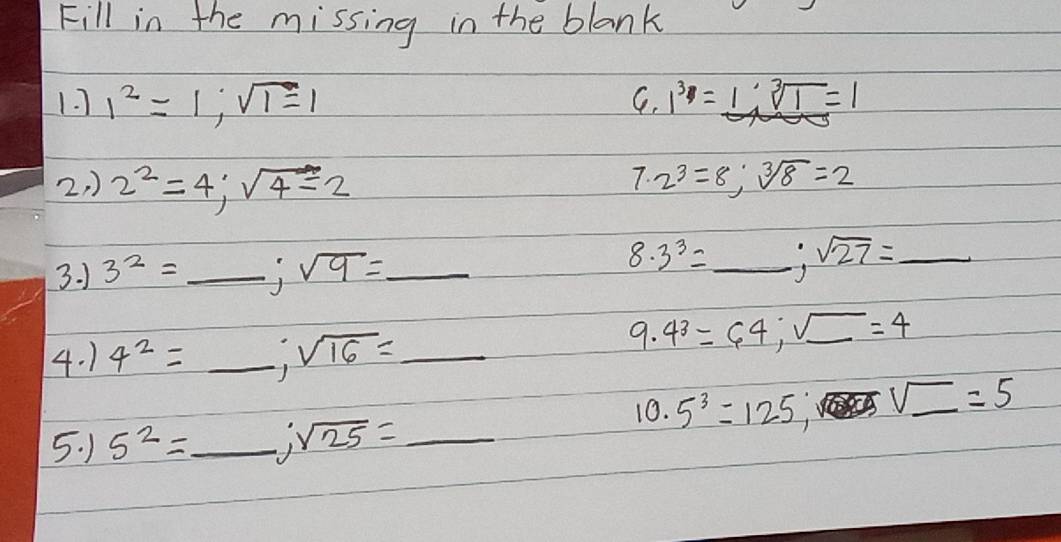 Fill in the missing in the blank
1.) 1² = 1 ; √1 = 1
2.) 2² = 4 ; √4 = 2
3.) 3² = ___ ; √9 = ___
4.) 4² = ___ ; √16 = ___
5.) 5² = ___ ; √25 = ___
6. 1³ = 1 ; ∛1 = 1
7. 2³ = 8 ; ∛8 = 2
8. 3³ = ___ ; √27 = ___
9. 4³ = 64 ; √___ = 4
10. 5³ = 125 ; √___ = 5